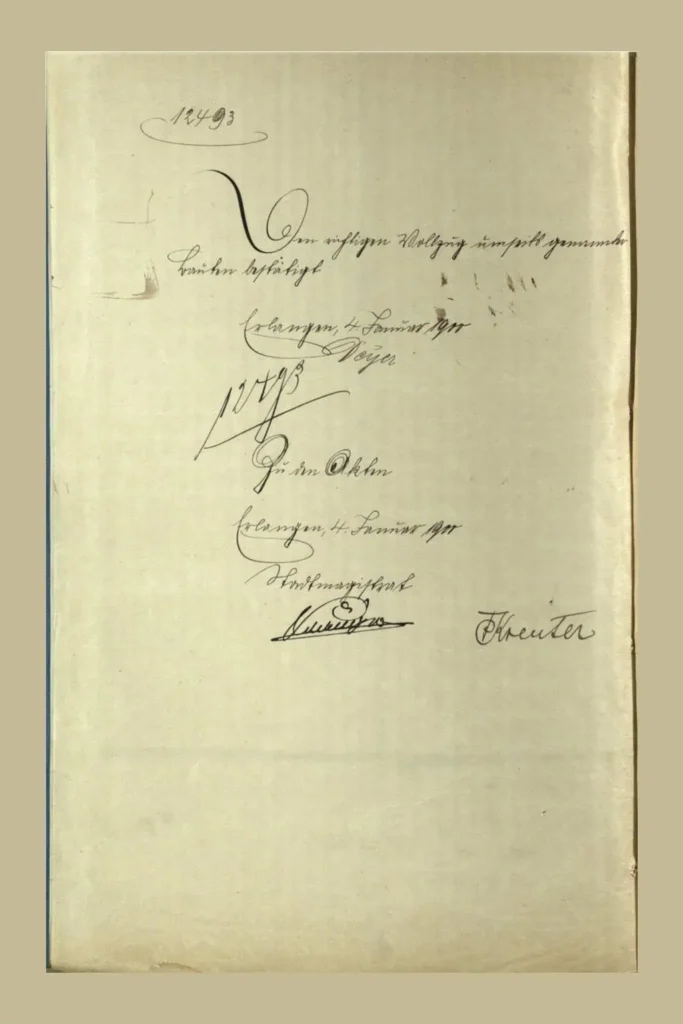 12493
Den richtigen Vollzug umseits genannter
Bauten bestätigt
Erlangen, 4. Januar 1900
12493
Zu den Akten
Erlangen, 4. Januar 1900
Stadtmagistrat
Kreuter